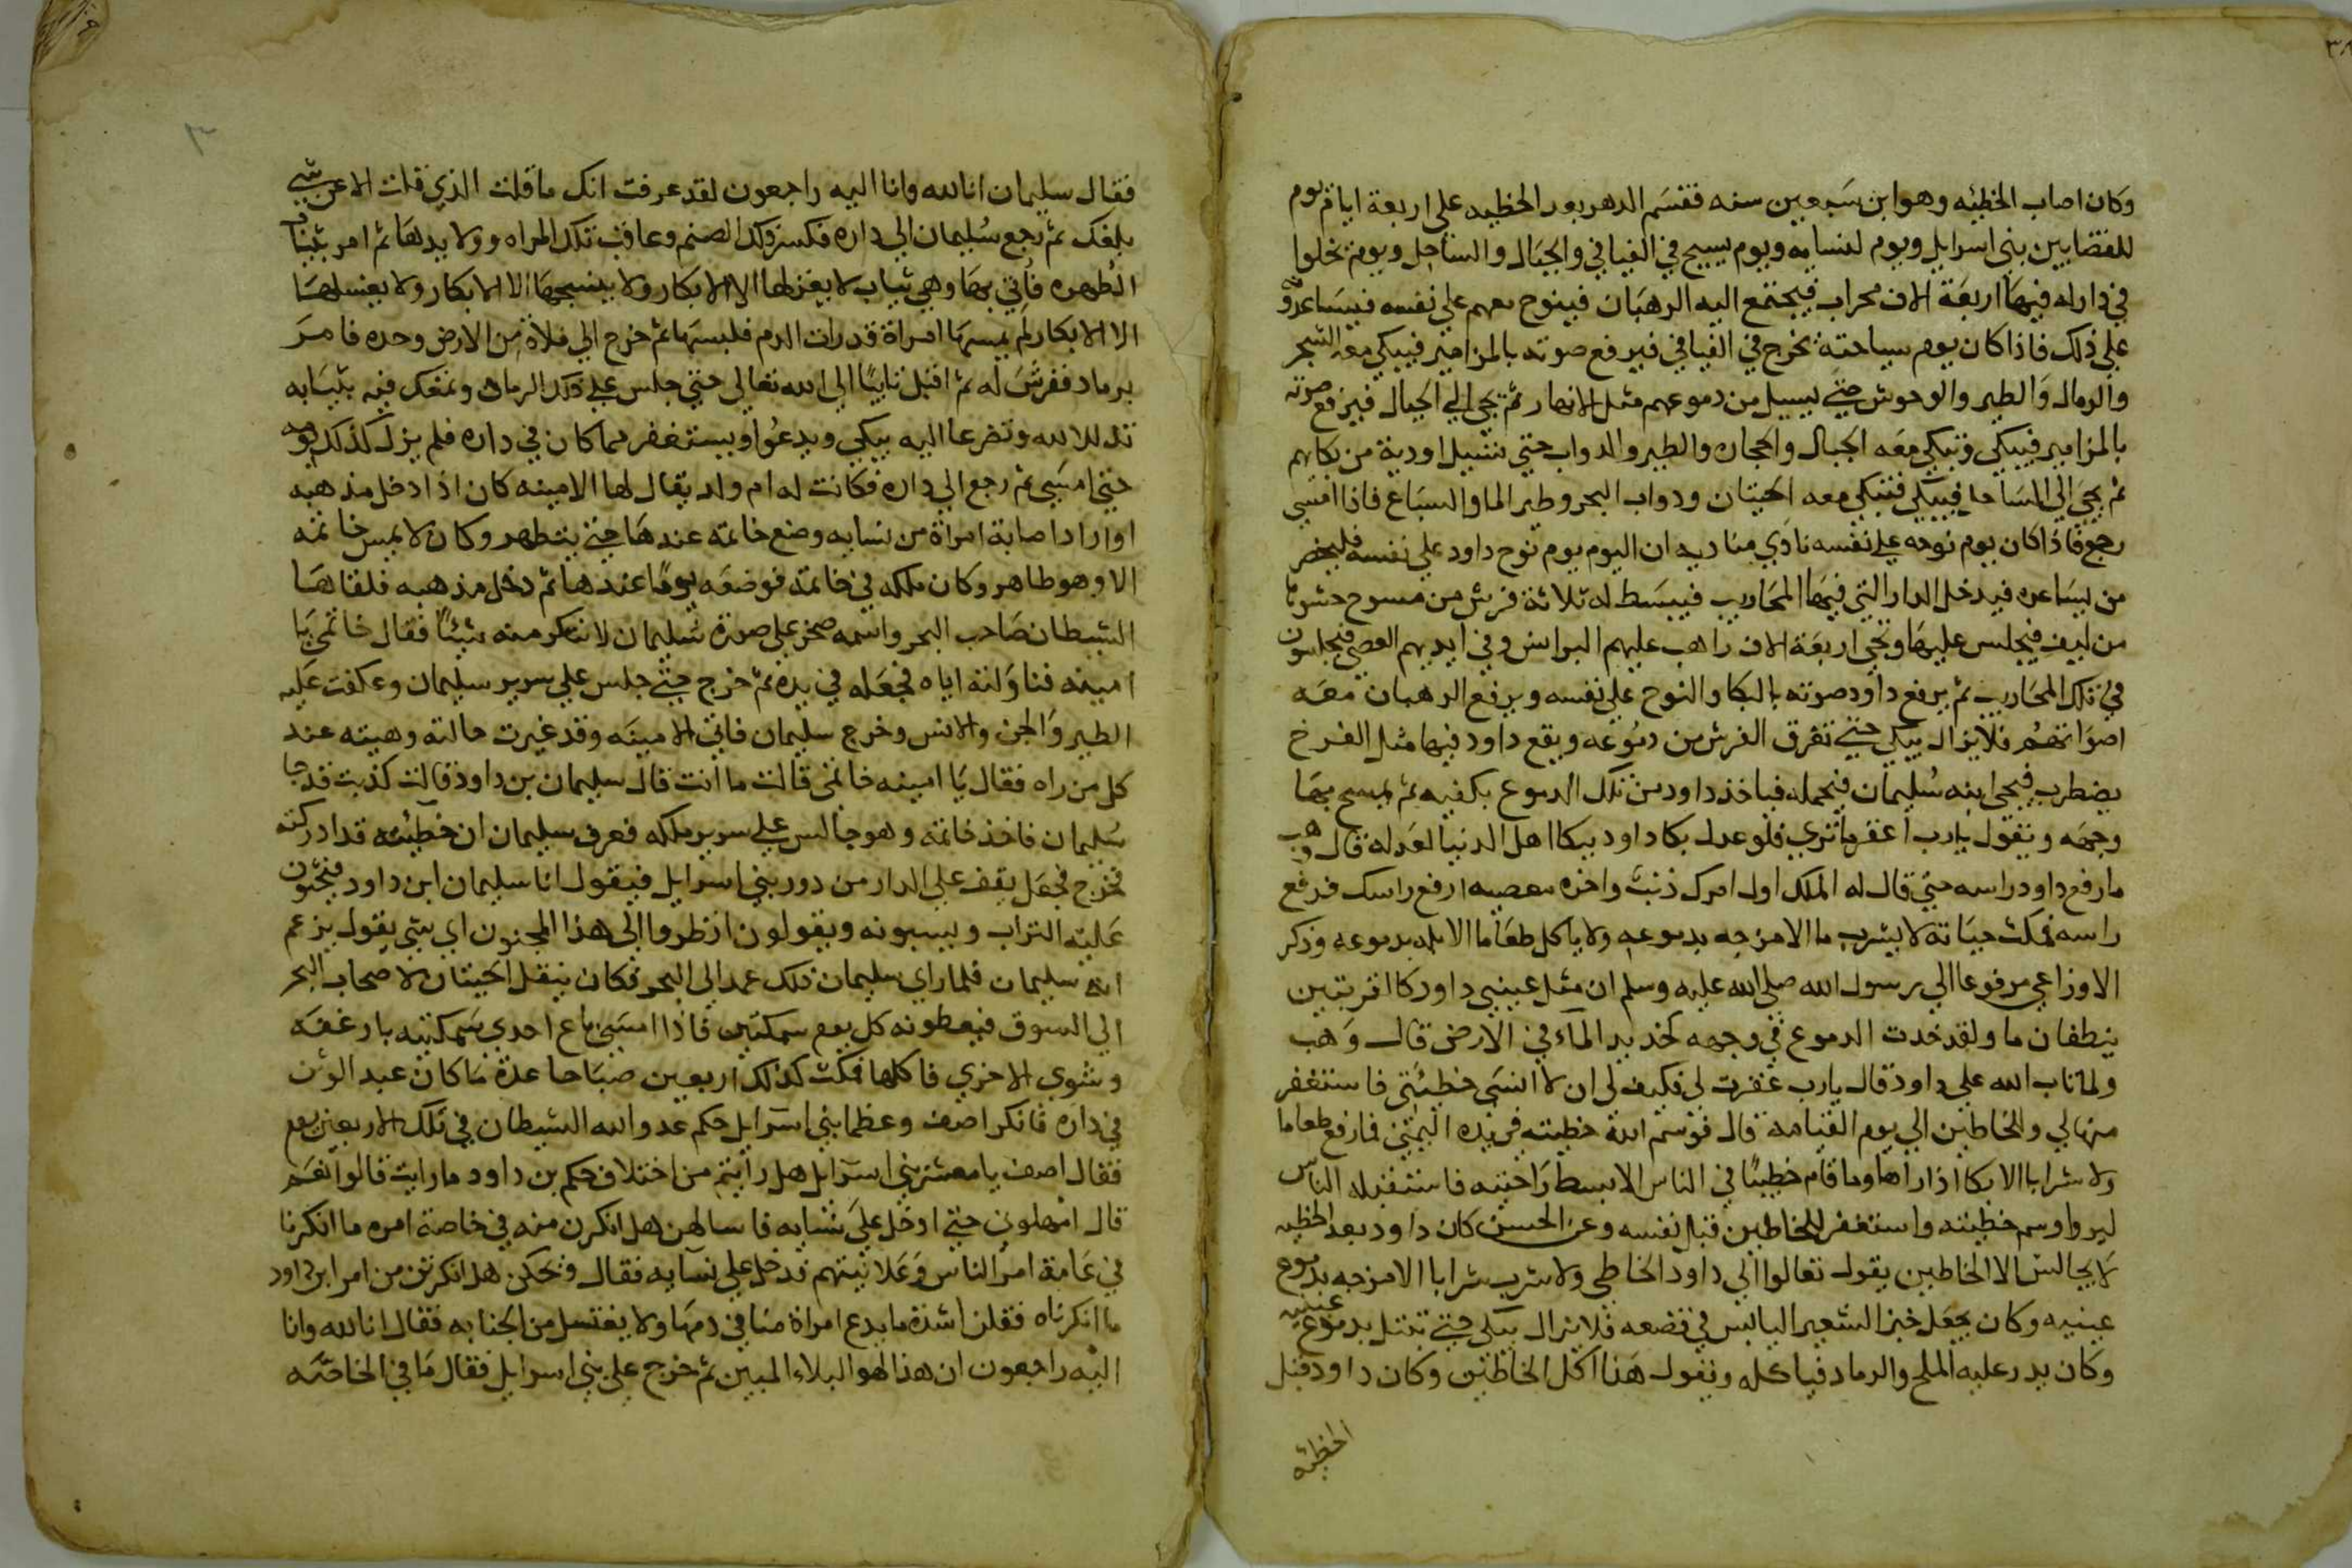 وكان اصاب الخطيئه وهو ابن سبعين سنه فقسم الدهر بعد الخطيه على اربعة ايام يوم
للقضا بين بني اسرايل ويوم لنسايه ويوم يسيح في الفيافي والجبال والساحل ويوم يخلوا
في دار له فيها اربعة الاف محراب فيجتمع اليه الرهبان فينوح معهم على نفسه فيساعدونه
على ذلك فاذا كان يوم سياحته يخرج في الفيافي فيرفع صوته بالمزامير فيبكي معه الشجر
والرمال والطير والوحوش حتي يسيل من دموعهم مثل الانهار ثم يجي الي الجبال فيرفع صوته
بالمزامير فيبكي وتبكي معه الجبال والحجاره والطير والدواب حتي تسيل اودية من بكايهم
ثم يجي الى الساحل فيبكي فتبكي معه الحيتان ودواب البحر وطير الما والسباع فاذا امسي
رجع فاذا كان يوم نوحه على نفسه نادي مناديه ان اليوم يوم نوح داود على نفسه فليحضر
من يساعده فيدخل الدار التي فيها المحاريب فيبسط له ثلاثة فرش من مسوح حشوها
من ليف فيجلس عليها ويجي اربعة الاف راهب عليهم البرانس وفي ايديهم العصي فيجلسون
في تلك المحاريب ثم يرفع داود صوته بالبكا والنوح على نفسه ويرفع الرهبان معه
اصواتهم فلايزال يبكي حتي تغرق الفرش من دموعه ويقع داود فيها مثل الفرخ
يضطرب فيجي ابنه سليمان فيحمله فياخذ داود من تلك الدموع بكفيه ثم يمسح بها
وجهه ويقول يارب اغفر ماتري فلو عدل بكا داود ببكا اهل الدنيا لعدله قال وهب
مارفع داود راسه حتي قال له الملك اول امرك ذنب واخره معصيه ارفع راسك فرفع
راسه فمكث حياته لا يشرب ما الا مزجه بدموعه ولا ياكل طعاما الا بله بدموعه وذكر
الاوزاعي مرفوعا الي رسول الله صلى الله عليه وسلم ان مثل عيني داود كالقربتين
ينطفان ما ولقد خدت الدموع في وجهه كخديد الماء في الارض قال وهب
ولما تاب الله على داود قال يارب غفرت لي فكيف لي ان لا انسى خطيئتي فاستغفر
منها لي وللخاطين الي يوم القيامه قال فوسم الله خطيته في يده اليمني فما رفع طعاما
ولا شرابا الا بكا اذا راها وما قام خطيبا في الناس الا بسط راحته فاستقبل الناس
ليروا وسم خطيته واستغفر للخاطين قبل نفسه وعن الحسن كان داود بعد الخطيه
لا يجالس الا الخاطين يقول تعالوا الى داود الخاطي ولا شرب شرابا الا مزجه بدموع
عينيه وكان يجعل خبز الشعير اليابس في قصعه فلا يزال يبكي حتي تبتل بدموع عينيه
وكان يذر عليه الملح والرماد فياكله ويقول هذا اكل الخاطين وكان داود قبل
الخطيئه
فقال سليمان انا لله وانا اليه راجعون لقد عرفت انك ما قلت الذي قلت الا عن شي
بلغك ثم رجع سليمان الي داره فكسر ذلك الصنم وعاقب تلك المراه وولايدها ثم امر بثياب
الطهره فاتي بها وهي ثياب لا يغزلها الا الابكار ولا ينسجها الا الابكار ولا يغسلها
الا الابكار لم يمسها امراة قد رات الدم فلبسها ثم خرج الي فلاة من الارض وحده فامر
برماد ففرش له ثم اقبل تايبا الي الله تعالى حتي جلس على ذلك الرماد وتمعك فيه بثيابه
تذللا لله وتضرعا اليه يبكي ويدعوا ويستغفر مما كان في داره فلم يزل كذلك يومه
حتي امسي ثم رجع الي داره فكانت له ام ولد يقال لها الامينه كان اذا دخل مذهبه
او اراد اصابة امراة من نسايه وضع خاتمه عندها حتي يتطهر وكان لا يمس خاتمه
الا وهو طاهر وكان ملكه في خاتمه فوضعه يوما عندها ثم دخل مذهبه فلقاها
الشيطان صاحب البحر واسمه صخر على صورة سليمان لا تنكر منه شيئا فقال خاتمي يا
امينه فناولته اياه فجعله في يده ثم خرج حتي جلس على سرير سليمان وعكفت عليه
الطير والجن والانس وخرج سليمان فاتي الامينه وقد غيرت حالته وهيته عند
كل من راه فقال يا امينه خاتمي قالت ما انت قال سليمان بن داود قالت كذبت قد جا
سليمان فاخذ خاتمه وهو جالس على سرير ملكه فعرف سليمان ان خطيئته قد ادركته
فخرج فجعل يقف على الدار من دور بني اسرايل فيقول انا سليمان ابن داود فيحثون
عليه التراب ويسبونه ويقولون انظروا الى هذا المجنون اي شي يقول يزعم
انه سليمان فلما راي سليمان ذلك عمد الى البحر فكان ينقل الحيتان لاصحاب البحر
الي السوق فيعطونه كل يوم سمكتين فاذا امسى باع احدي سمكتيه بارغفه
وشوى الاخري فاكلها فمكث كذلك اربعين صباحا عدة ما كان عبد الوثن
في داره فانكر اصف وعظما بني اسرايل حكم عدو الله الشيطان في تلك الاربعين يوم
فقال اصف يا معشر بني اسرايل هل رايتم من اختلاف حكم بن داود ما رايت قالوا نعم
قال امهلوني حتي ادخل على نسايه فاسالهن هل انكرن منه في خاصة امره ما انكرنا
في عامة امر الناس وعلانيتهم فدخل على نسايه فقال ويحكن هل انكرتن من امر ابن داود
ما انكرناه فقلن اشده ما يدع امراة منا في دمها ولا يغتسل من الجنابه فقال انا لله وانا
اليه راجعون ان هذا لهو البلاء المبين ثم خرج على بني اسرايل فقال ما في الخاصه